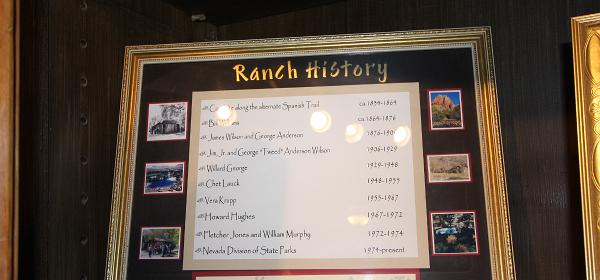 Ranch History
along the alternate Spanish Trail ca.1834-1864
ca.1864-1876
James Wilson and George Anderson
Jim, Jr. and George "Tweed" Anderson Wilson 1906-1929
Willard George 1929-1948
Chet Lauck 1948-1955
Vera Krupp 1955-1967
Howard Hughes 1967-1972
Fletcher Jones and William Murphy 1972-1974
Nevada Division of State Parks 1974-present